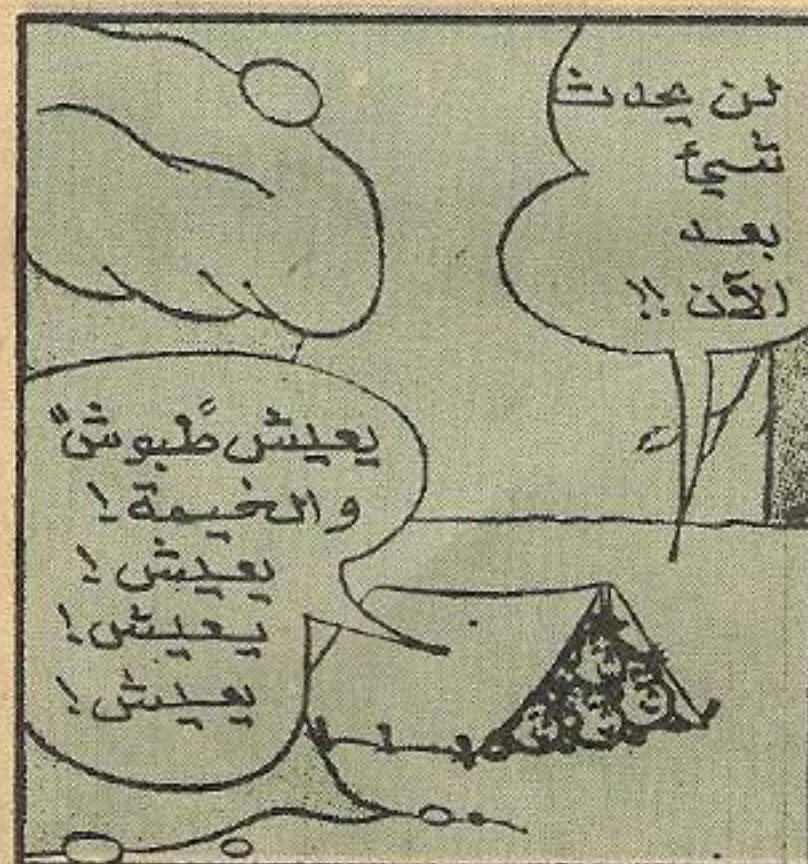 لن يحدث
شيئاً
بعد
الآن !!
يعيش طبوش
والخيمة !
يعيش !
يعيش !
يعيش !